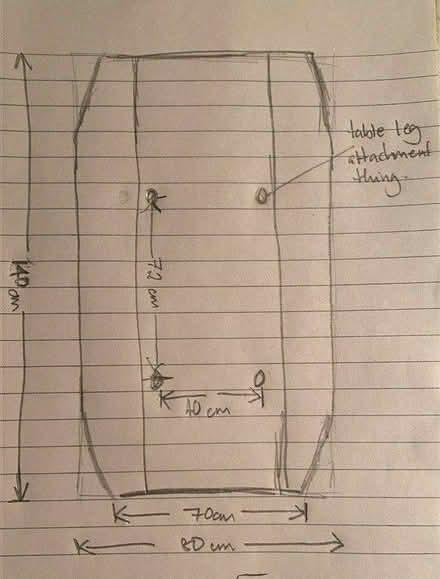 table leg
attachment
thing.
140 cm
72 cm
40 cm
70cm
80 cm